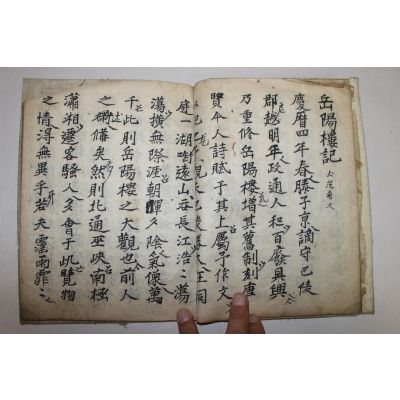 岳陽樓記
慶曆四年春滕子京謫守巴陵
郡越明年政通人和百廢具興
乃重修岳陽樓增其舊制刻唐
賢今人詩賦于其上屬予作文
庭一湖啣遠山吞長江浩〻蕩
蕩橫無際涯朝暉夕陰氣像萬
千此則岳陽樓之大觀也前人
之備矣然則北通巫峽南極
瀟湘遷客騷人多會于此覽物
之情得無異乎若夫霪雨霏〻